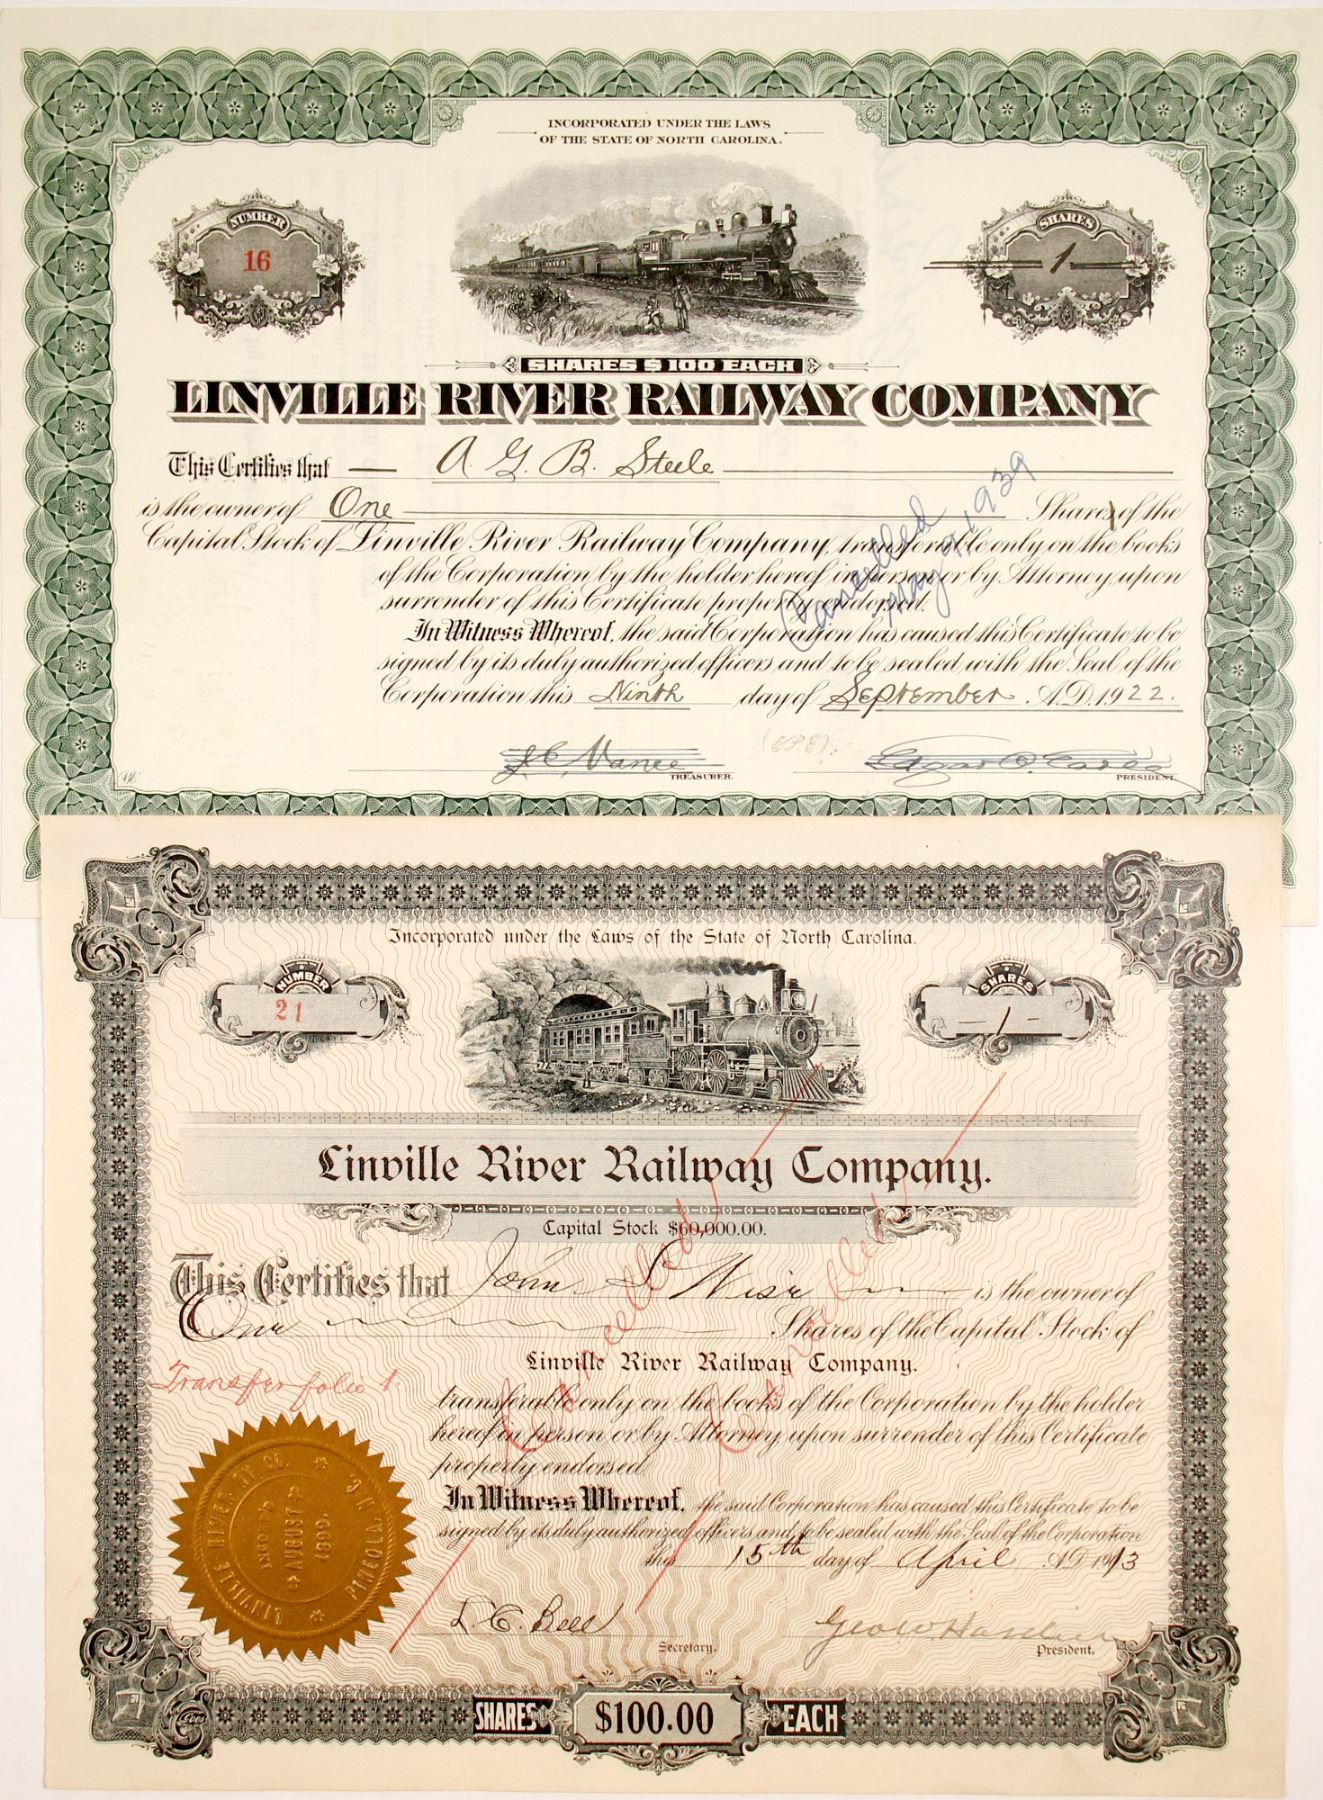 INCORPORATED UNDER THE LAWS
OF THE STATE OF NORTH CAROLINA.
NUMBER
16
SHARES
1
SHARES $100 EACH
LINVILLE RIVER RAILWAY COMPANY
This Certifies that A. G. B. Steele
is the owner of One Shares of the
Capital Stock of Linville River Railway Company, transferable only on the books
of the Corporation by the holder hereof in person or by Attorney, upon
surrender of this Certificate properly endorsed.
In Witness Whereof, the said Corporation has caused this Certificate to be
signed by its duly authorized officers and to be sealed with the Seal of the
Corporation this Ninth day of September A.D. 1922.
Cancelled
May 9, 1939
J C Vance
TREASURER.
PRESIDENT
Incorporated under the Laws of the State of North Carolina.
NUMBER
21
SHARES
- 1 -
Linville River Railway Company.
Capital Stock $60,000.00.
This Certifies that John S Wise is the owner of
One Shares of the Capital Stock of
Linville River Railway Company.
Transfer folio 1
transferable only on the books of the Corporation by the holder
hereof in person or by Attorney upon surrender of this Certificate
properly endorsed.
In Witness Whereof, the said Corporation has caused this Certificate to be
signed by its duly authorized officers and to be sealed with the Seal of the Corporation
this 15th day of April A.D. 1913
Cancelled
Cancelled
LINVILLE RIVER RY. CO. * PINEOLA, N.C. *
AUGUST
1899.
Secretary.
President.
SHARES $100.00 EACH